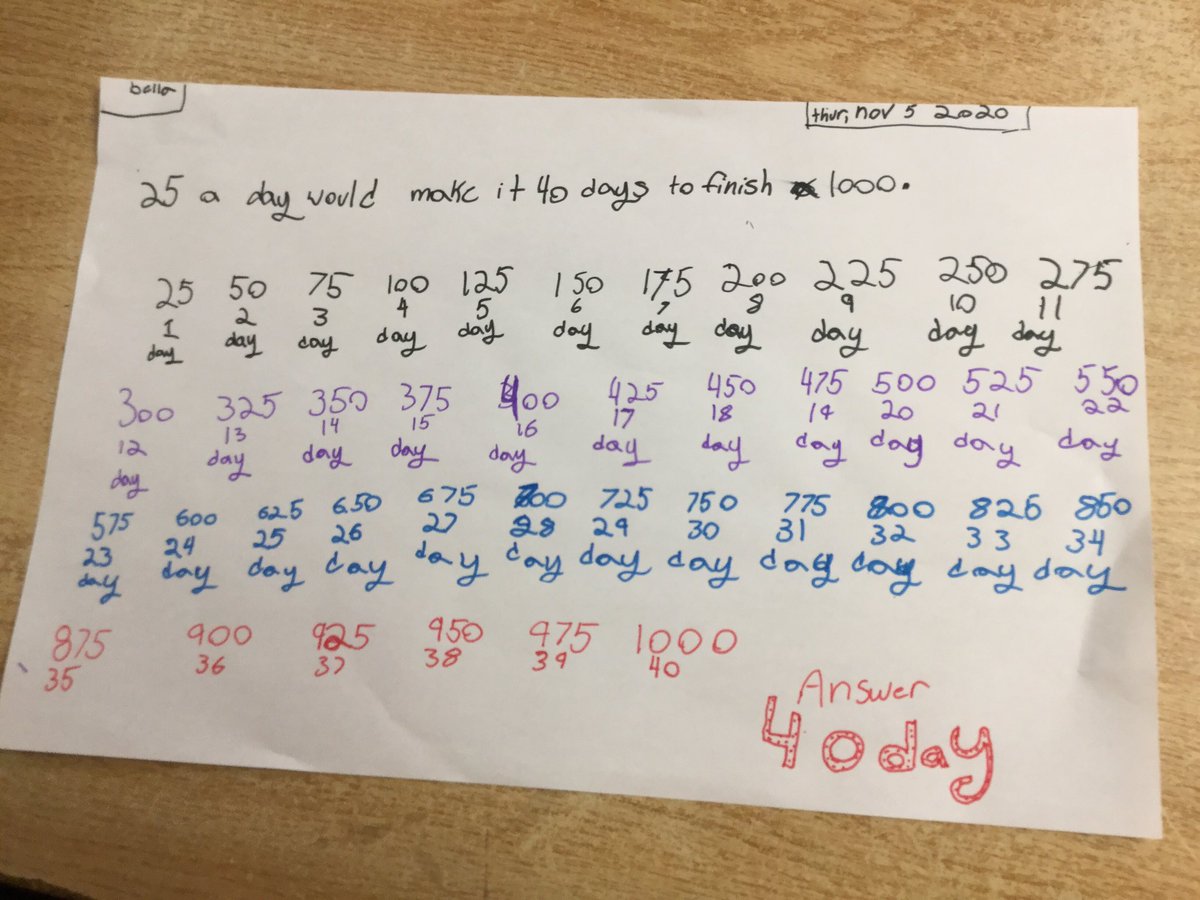 balla
thur, nov 5 2020
25 a day would make it 40 days to finish 1000.
25 50 75 100 125 150 175 200 225 250 275
1 2 3 4 5 6 7 8 9 10 11
day day day day day day day day day day day
300 325 350 375 400 425 450 475 500 525 550
12 13 14 15 16 17 18 19 20 21 22
day day day day day day day day day day day
575 600 625 650 675 700 725 750 775 800 825 850
23 24 25 26 27 28 29 30 31 32 33 34
day day day day day day day day day day day day
875 900 925 950 975 1000
35 36 37 38 39 40
Answer
40 day